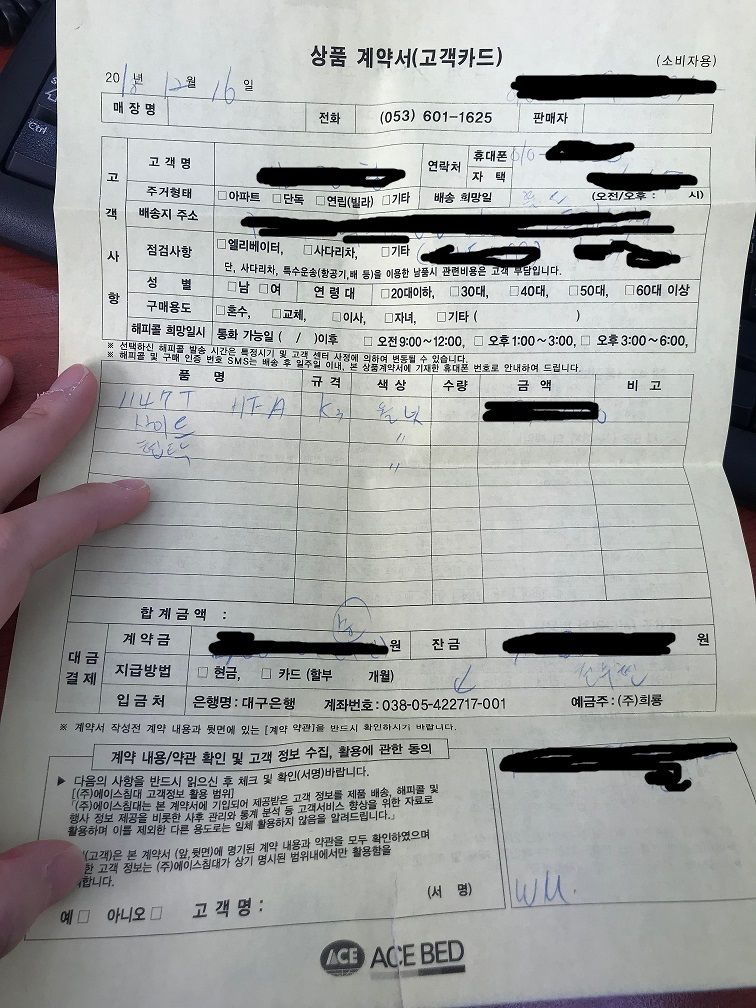 상품 계약서(고객카드)
(소비자용)
2018년 12월 16일
매장명 전화 (053) 601-1625 판매자
고객사항
고객명 연락처 휴대폰 010-
자택
주거형태 □아파트 □단독 □연립(빌라) □기타 배송 희망일 (오전/오후 : 시)
배송지 주소
점검사항 □엘리베이터, □사다리차, □기타 (
단, 사다리차, 특수운송(항공기,배 등)을 이용한 납품시 관련비용은 고객 부담입니다.
성별 □남 □여 연령대 □20대이하, □30대, □40대, □50대, □60대 이상
구매용도 □혼수, □교체, □이사, □자녀, □기타 ( )
해피콜 희망일시 통화 가능일 ( / )이후 □ 오전 9:00~12:00, □ 오후 1:00~3:00, □ 오후 3:00~6:00,
※ 선택하신 해피콜 발송 시간은 특정시기 및 고객 센터 사정에 의하여 변동될 수 있습니다.
※ 해피콜 및 구매 인증 번호 SMS는 배송 후 일주일 이내, 본 상품계약서에 기재한 휴대폰 번호로 안내하여 드립니다.
품명 규격 색상 수량 금액 비고
1147T HFA K3 월넛
사이드 〃
협탁 〃
합계금액 :
대금결제
계약금 원 잔금 원
지급방법 □ 현금, □ 카드 (할부 개월)
입금처 은행명: 대구은행 계좌번호: 038-05-422717-001 예금주: (주)희룡
※ 계약서 작성전 계약 내용과 뒷면에 있는 [계약 약관]을 반드시 확인하시기 바랍니다.
계약 내용/약관 확인 및 고객 정보 수집, 활용에 관한 동의
▶ 다음의 사항을 반드시 읽으신 후 체크 및 확인(서명)바랍니다.
[(주)에이스침대 고객정보 활용 범위]
「(주)에이스침대는 본 계약서에 기입되어 제공받은 고객 정보를 제품 배송, 해피콜 및
행사 정보 제공을 비롯한 사후 관리와 통계 분석 등 고객서비스 향상을 위한 자료로
활용하며 이를 제외한 다른 용도로는 일체 활용하지 않음을 알려드립니다.」
(고객)은 본 계약서 (앞,뒷면)에 명기된 계약 내용과 약관을 모두 확인하였으며
한 고객 정보는 (주)에이스침대가 상기 명시된 범위내에서만 활용함을
합니다.
(서 명)
예□ 아니오□ 고객명 :
ACE ACE BED